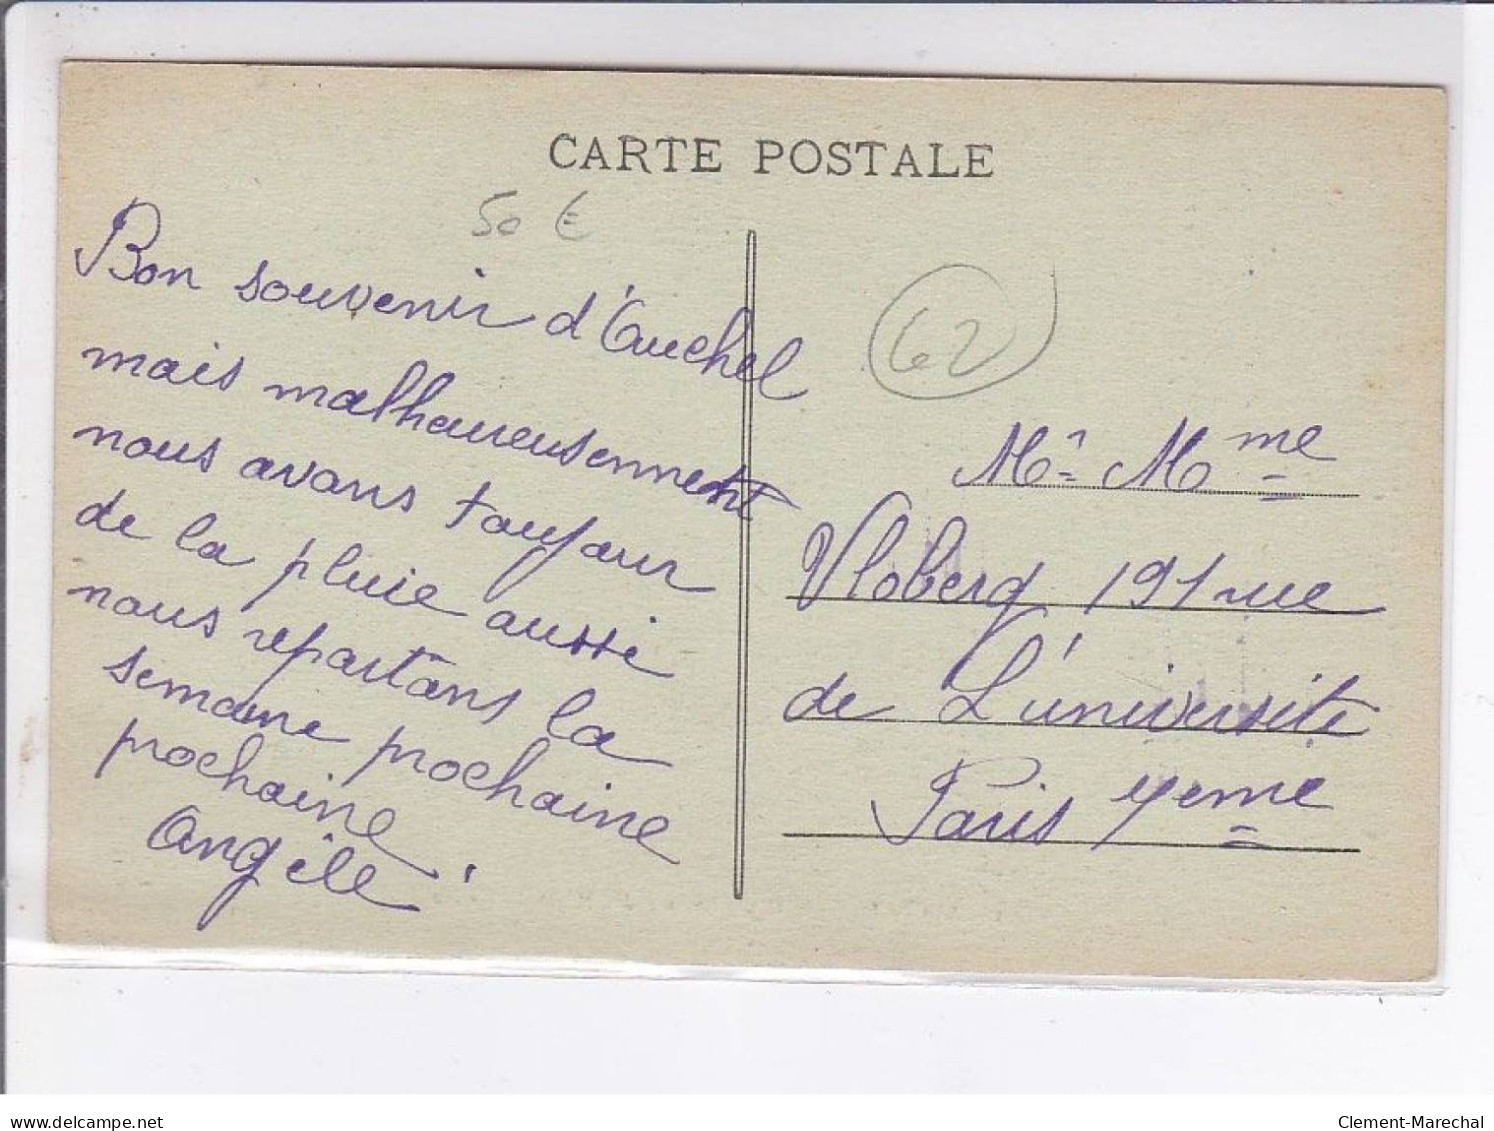 CARTE POSTALE
50 €
Bon souvenir d'Auchel
mais malhaureusemment
nous avons toujour
de la pluie aussi
nous repartons la
semaine prochaine
prochaine
Angèle
62
Mr Mme
Vloberg 191 rue
de L'université
Paris 7eme
delcampe.net
Clement-Marechal